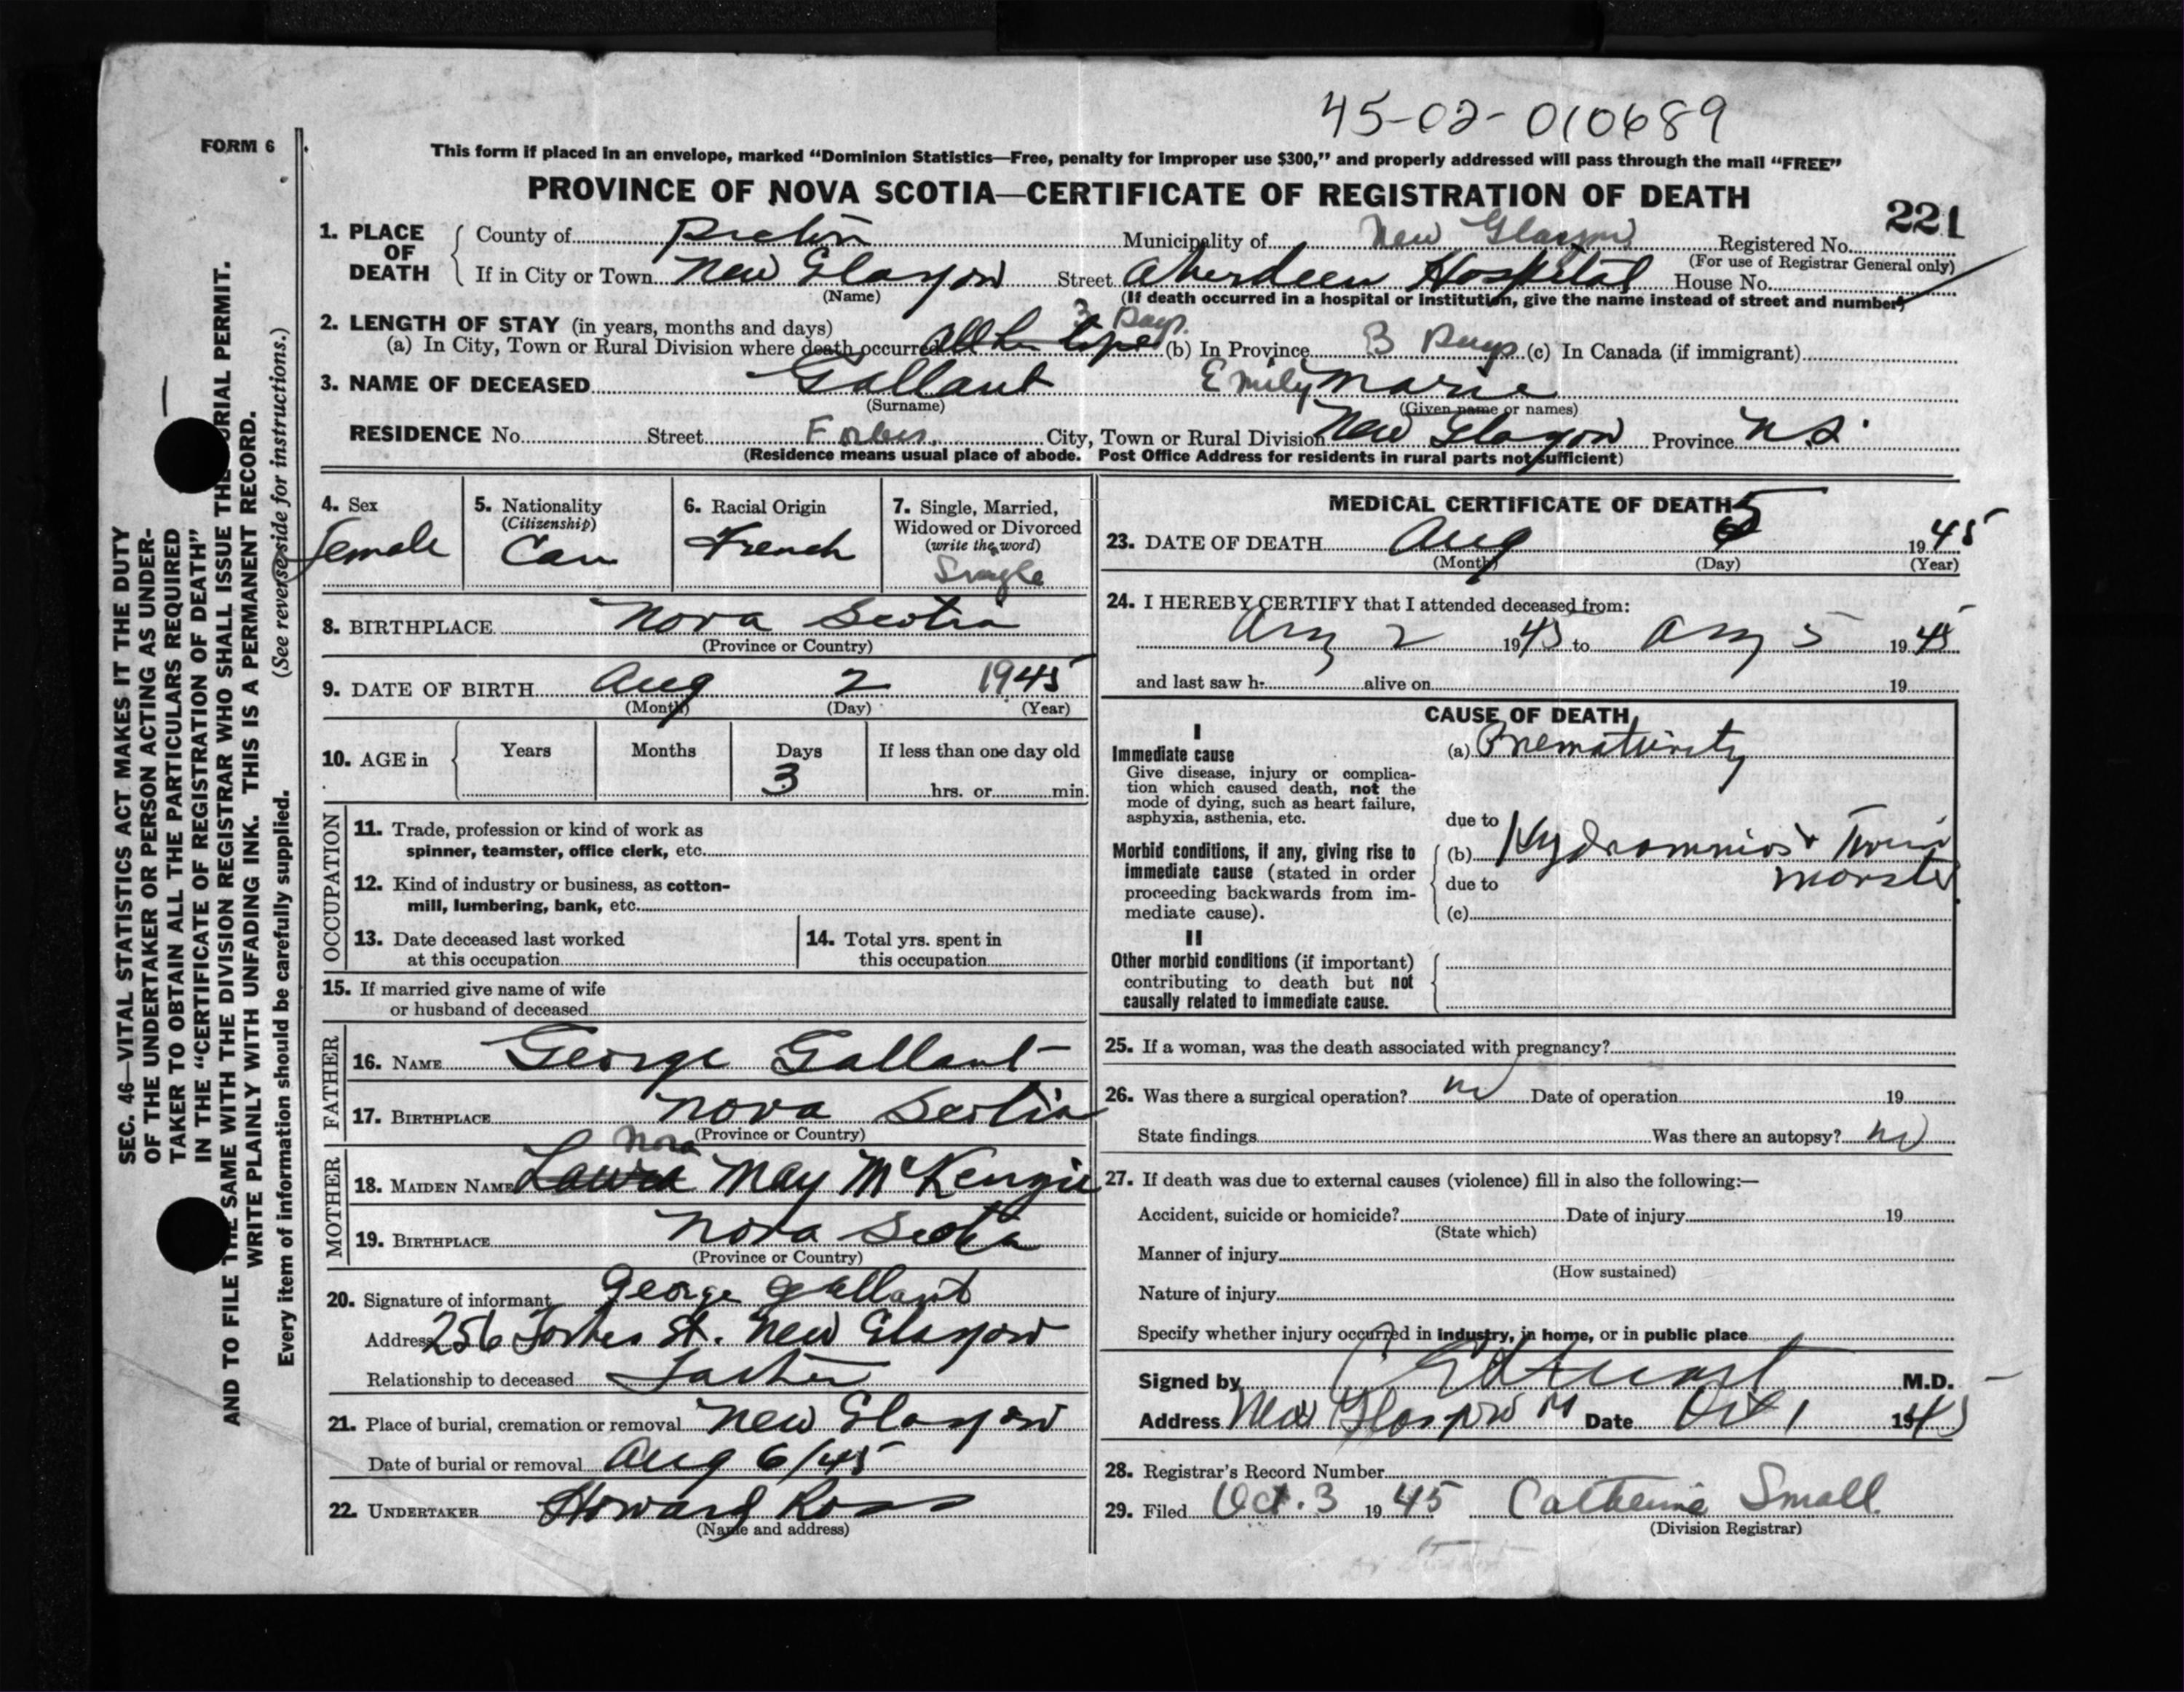 45-02-010689
FORM 6
This form if placed in an envelope, marked "Dominion Statistics—Free, penalty for improper use $300," and properly addressed will pass through the mail "FREE"
PROVINCE OF NOVA SCOTIA—CERTIFICATE OF REGISTRATION OF DEATH
221
1. PLACE OF DEATH
County of Pictou Municipality of New Glasgow Registered No.
(For use of Registrar General only)
If in City or Town New Glasgow Street Aberdeen Hospital House No.
(Name) (If death occurred in a hospital or institution, give the name instead of street and number)
2. LENGTH OF STAY (in years, months and days) 3 Days
(a) In City, Town or Rural Division where death occurred All her life (b) In Province 3 Days (c) In Canada (if immigrant)
3. NAME OF DECEASED Gallant Emily Marie
(Surname) (Given name or names)
RESIDENCE No. Street Forbes City, Town or Rural Division New Glasgow Province N.S.
(Residence means usual place of abode. Post Office Address for residents in rural parts not sufficient)
4. Sex
Female
5. Nationality
(Citizenship)
Can
6. Racial Origin
French
7. Single, Married,
Widowed or Divorced
(write the word)
Single
8. BIRTHPLACE Nova Scotia
(Province or Country)
9. DATE OF BIRTH Aug 2 1945
(Month) (Day) (Year)
10. AGE in Years Months Days If less than one day old
3 hrs. or min.
OCCUPATION
11. Trade, profession or kind of work as
spinner, teamster, office clerk, etc.
12. Kind of industry or business, as cotton-
mill, lumbering, bank, etc.
13. Date deceased last worked
at this occupation
14. Total yrs. spent in
this occupation
15. If married give name of wife
or husband of deceased
FATHER
16. NAME George Gallant
17. BIRTHPLACE Nova Scotia
(Province or Country)
MOTHER
Nora
18. MAIDEN NAME Laura May McKenzie
19. BIRTHPLACE Nova Scotia
(Province or Country)
20. Signature of informant George Gallant
Address 256 Forbes St. New Glasgow
Relationship to deceased Father
21. Place of burial, cremation or removal New Glasgow
Date of burial or removal Aug 6/45
22. UNDERTAKER Howard Ross
(Name and address)
MEDICAL CERTIFICATE OF DEATH
23. DATE OF DEATH Aug 5 1945
(Month) (Day) (Year)
24. I HEREBY CERTIFY that I attended deceased from:
Aug 2 1945 to Aug 5 1945
and last saw h- alive on 19
CAUSE OF DEATH
I
Immediate cause
Give disease, injury or complica-
tion which caused death, not the
mode of dying, such as heart failure,
asphyxia, asthenia, etc.
(a) Prematurity
due to
Morbid conditions, if any, giving rise to
immediate cause (stated in order
proceeding backwards from im-
mediate cause).
(b) Hydramnios & Twin
due to monster
(c)
II
Other morbid conditions (if important)
contributing to death but not
causally related to immediate cause.
25. If a woman, was the death associated with pregnancy?
26. Was there a surgical operation? no Date of operation 19
State findings Was there an autopsy? no
27. If death was due to external causes (violence) fill in also the following:—
Accident, suicide or homicide? Date of injury 19
(State which)
Manner of injury
(How sustained)
Nature of injury
Specify whether injury occurred in industry, in home, or in public place
Signed by M.D.
Address New Glasgow Date Oct 1 1945
28. Registrar's Record Number
29. Filed Oct. 3 1945 Catherine Small
(Division Registrar)
SEC. 46—VITAL STATISTICS ACT MAKES IT THE DUTY
OF THE UNDERTAKER OR PERSON ACTING AS UNDER-
TAKER TO OBTAIN ALL THE PARTICULARS REQUIRED
IN THE "CERTIFICATE OF REGISTRATION OF DEATH"
AND TO FILE THE SAME WITH THE DIVISION REGISTRAR WHO SHALL ISSUE THE BURIAL PERMIT.
WRITE PLAINLY WITH UNFADING INK. THIS IS A PERMANENT RECORD.
Every item of information should be carefully supplied. (See reverse side for instructions.)